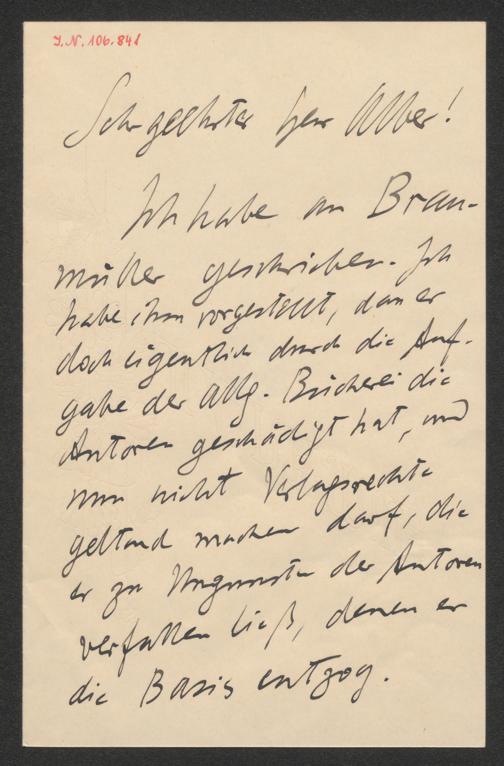 I.N. 106.841
Sehr geehrter Herr Alber!
Ich habe an Brau-
müller geschrieben. Ich
habe ihm vorgestellt, dass er
doch eigentlich durch die Auf-
gabe der Allg. Bücherei die
Autoren geschädigt hat, und
nun nicht Verlagsrechte
geltend machen darf, die
er zu Ungunsten der Autoren
verfallen ließ, denen er
die Basis entzog.